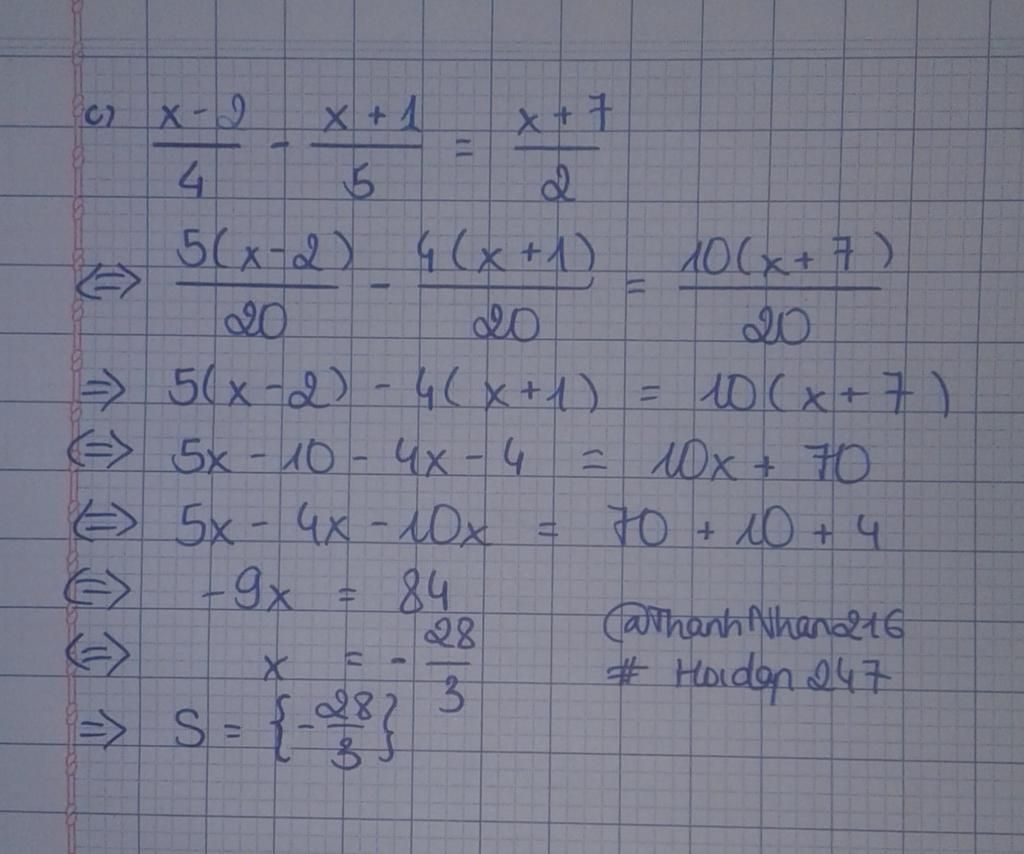 c) x - 2 / 4 - x + 1 / 5 = x + 7 / 2
⇔ 5(x - 2) / 20 - 4(x + 1) / 20 = 10(x + 7) / 20
⇒ 5(x - 2) - 4(x + 1) = 10(x + 7)
⇔ 5x - 10 - 4x - 4 = 10x + 70
⇔ 5x - 4x - 10x = 70 + 10 + 4
⇔ -9x = 84
⇔ x = - 28 / 3
⇒ S = {- 28 / 3}
@ThanhNhan216
# Hoidap 247